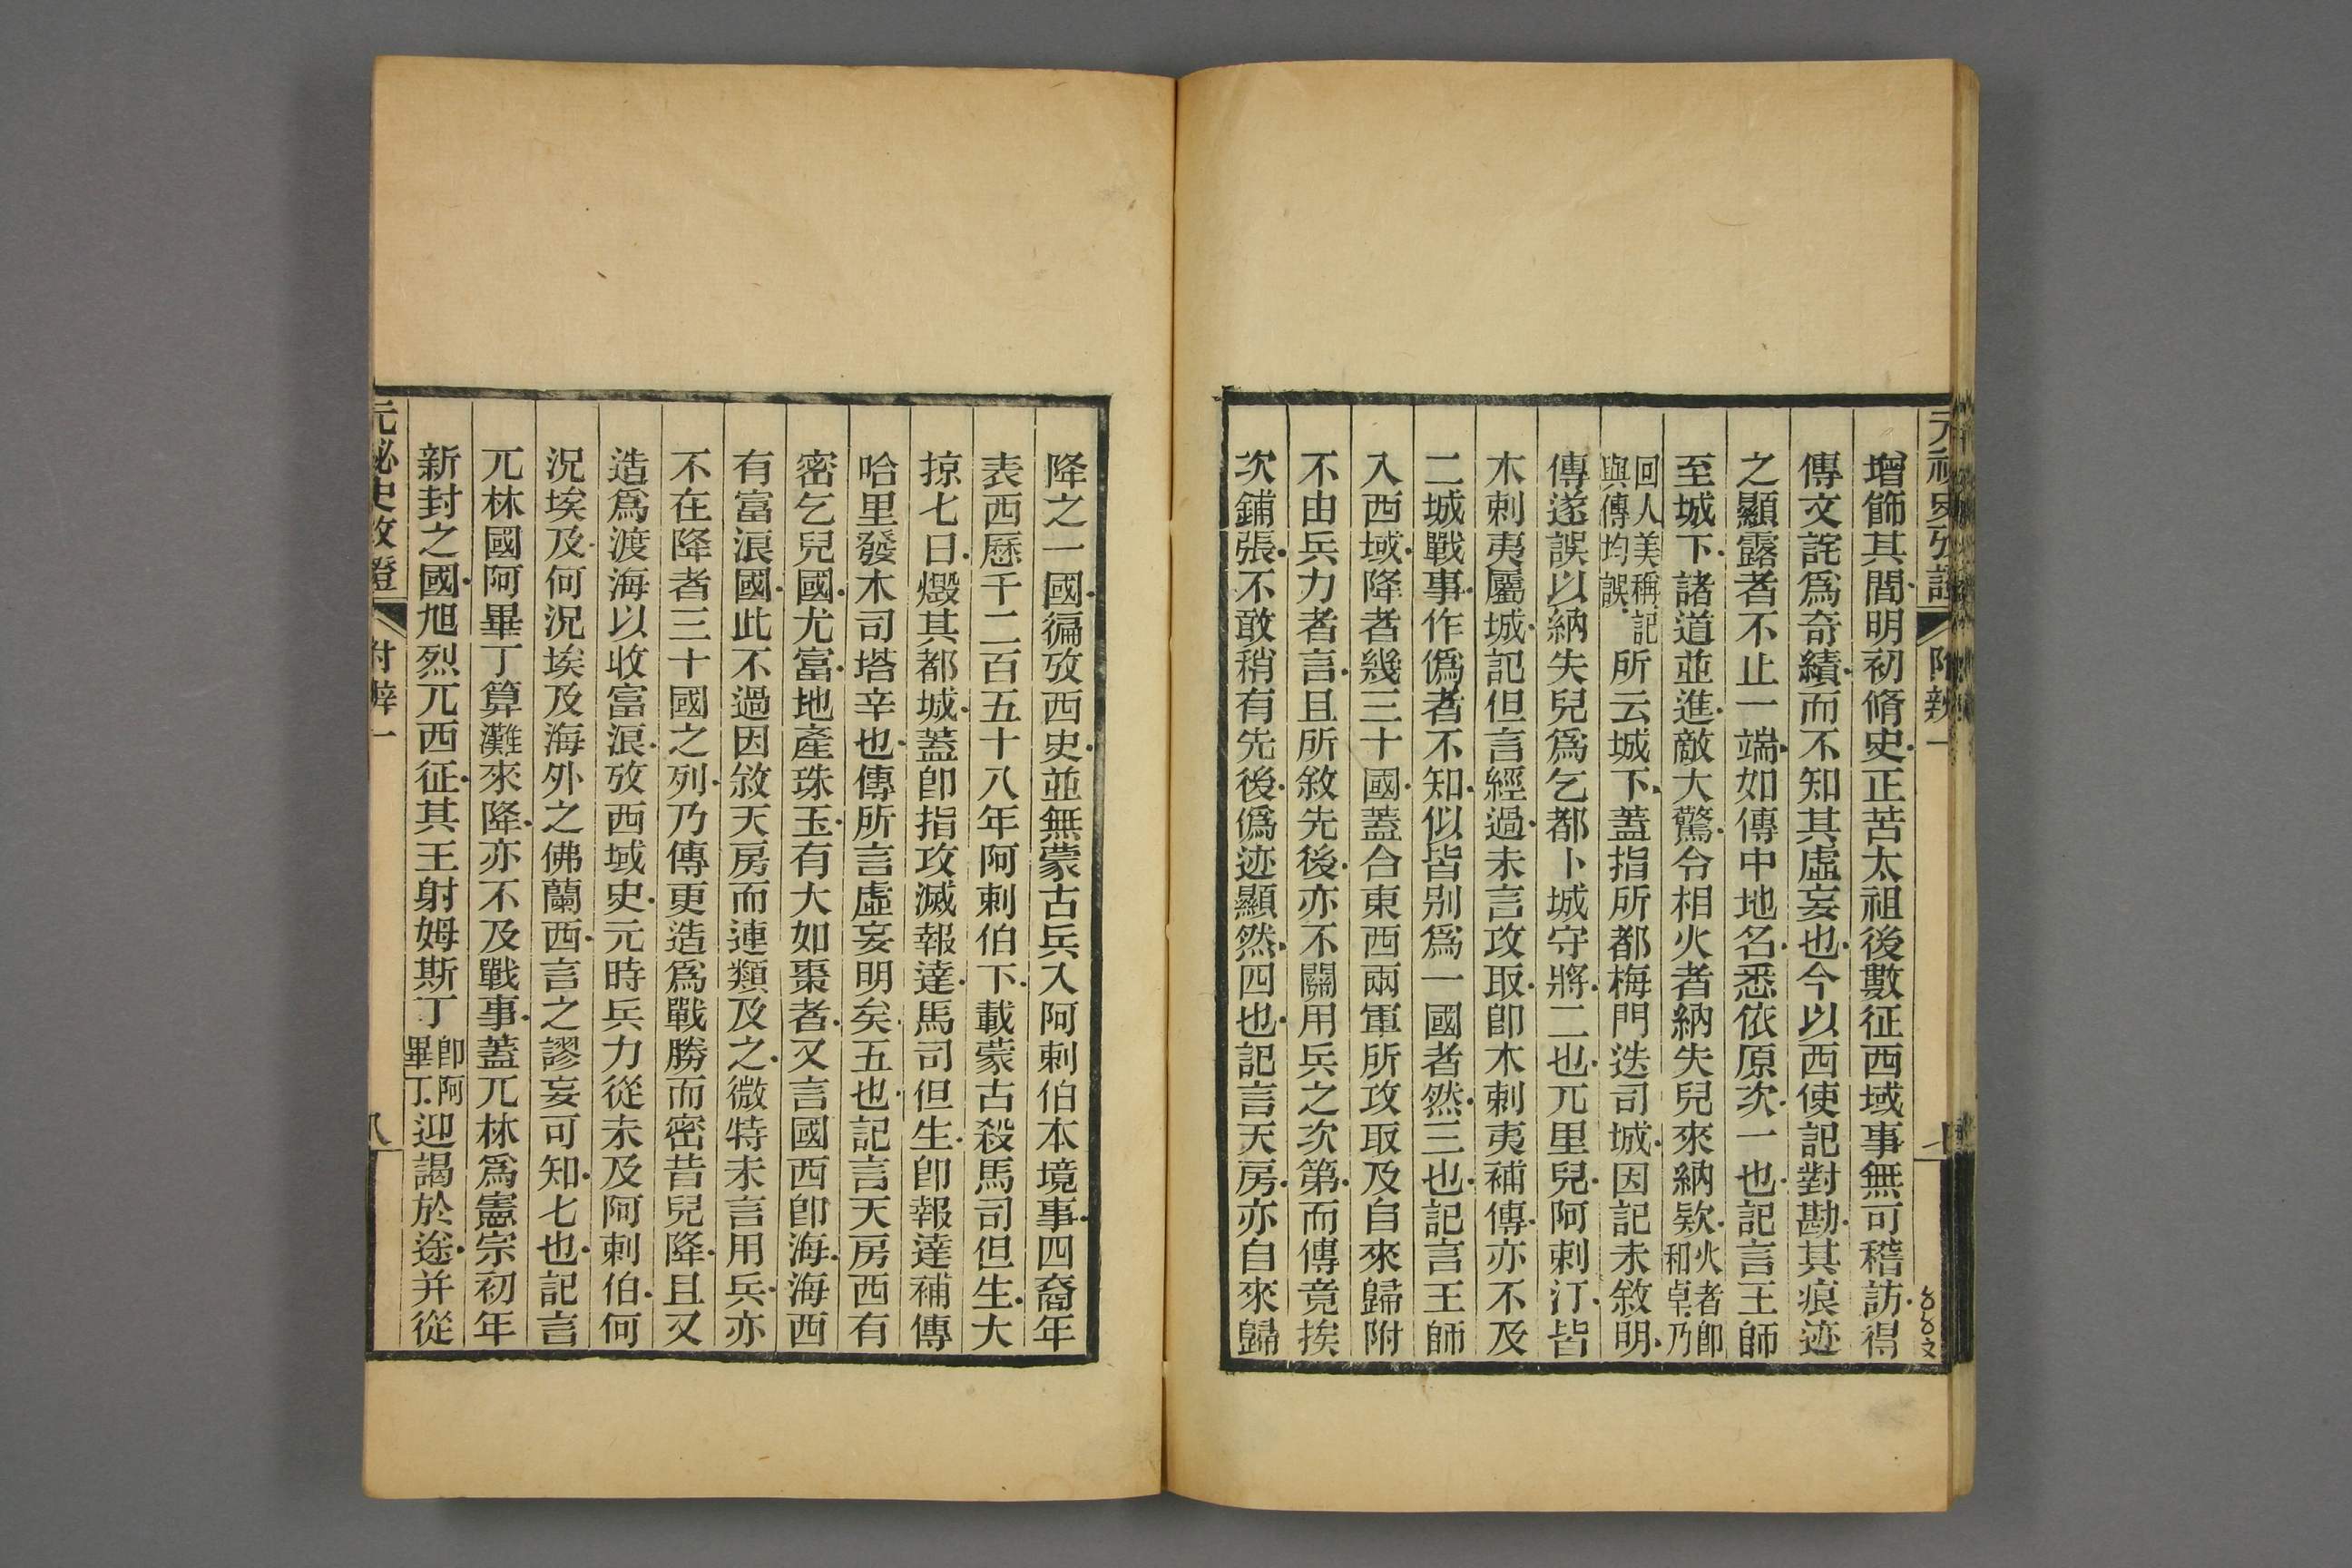 元祕史攷證
附辨一
七
增飾其間明初脩史正苦太祖後數征西域事無可稽訪得
傳文詫爲奇績而不知其虛妄也今以西使記對勘其痕迹
之顯露者不止一端如傳中地名悉依原次一也記言王師
至城下諸道並進敵大驚令相火者納失兒來納欵火者卽
和卓乃
回人美稱記
與傳均誤所云城下蓋指所都梅門迭司城因記未敘明
傳遂誤以納失兒爲乞都卜城守將二也兀里兒阿剌汀皆
木剌夷屬城記但言經過未言攻取卽木剌夷補傳亦不及
二城戰事作僞者不知似皆别爲一國者然三也記言王師
入西域降者幾三十國蓋合東西兩軍所攻取及自來歸附
不由兵力者言且所敘先後亦不關用兵之次第而傳竟挨
次鋪張不敢稍有先後僞迹顯然四也記言天房亦自來歸
降之一國徧攷西史並無蒙古兵入阿剌伯本境事四裔年
表西歷千二百五十八年阿剌伯下載蒙古殺馬司但生大
掠七日燬其都城蓋卽指攻滅報達馬司但生卽報達補傳
哈里發木司塔辛也傳所言虛妄明矣五也記言天房西有
密乞兒國尤富地產珠玉有大如棗者又言國西卽海海西
有富浪國此不過因敘天房而連類及之微特未言用兵亦
不在降者三十國之列乃傳更造爲戰勝而密昔兒降且又
造爲渡海以收富浪攷西域史元時兵力從未及阿剌伯何
況埃及何況埃及海外之佛蘭西言之謬妄可知七也記言
兀林國阿畢丁算灘來降亦不及戰事蓋兀林爲憲宗初年
新封之國旭烈兀西征其王射姆斯丁卽阿
畢丁迎謁於途并從
元祕史攷證
附辨一
八